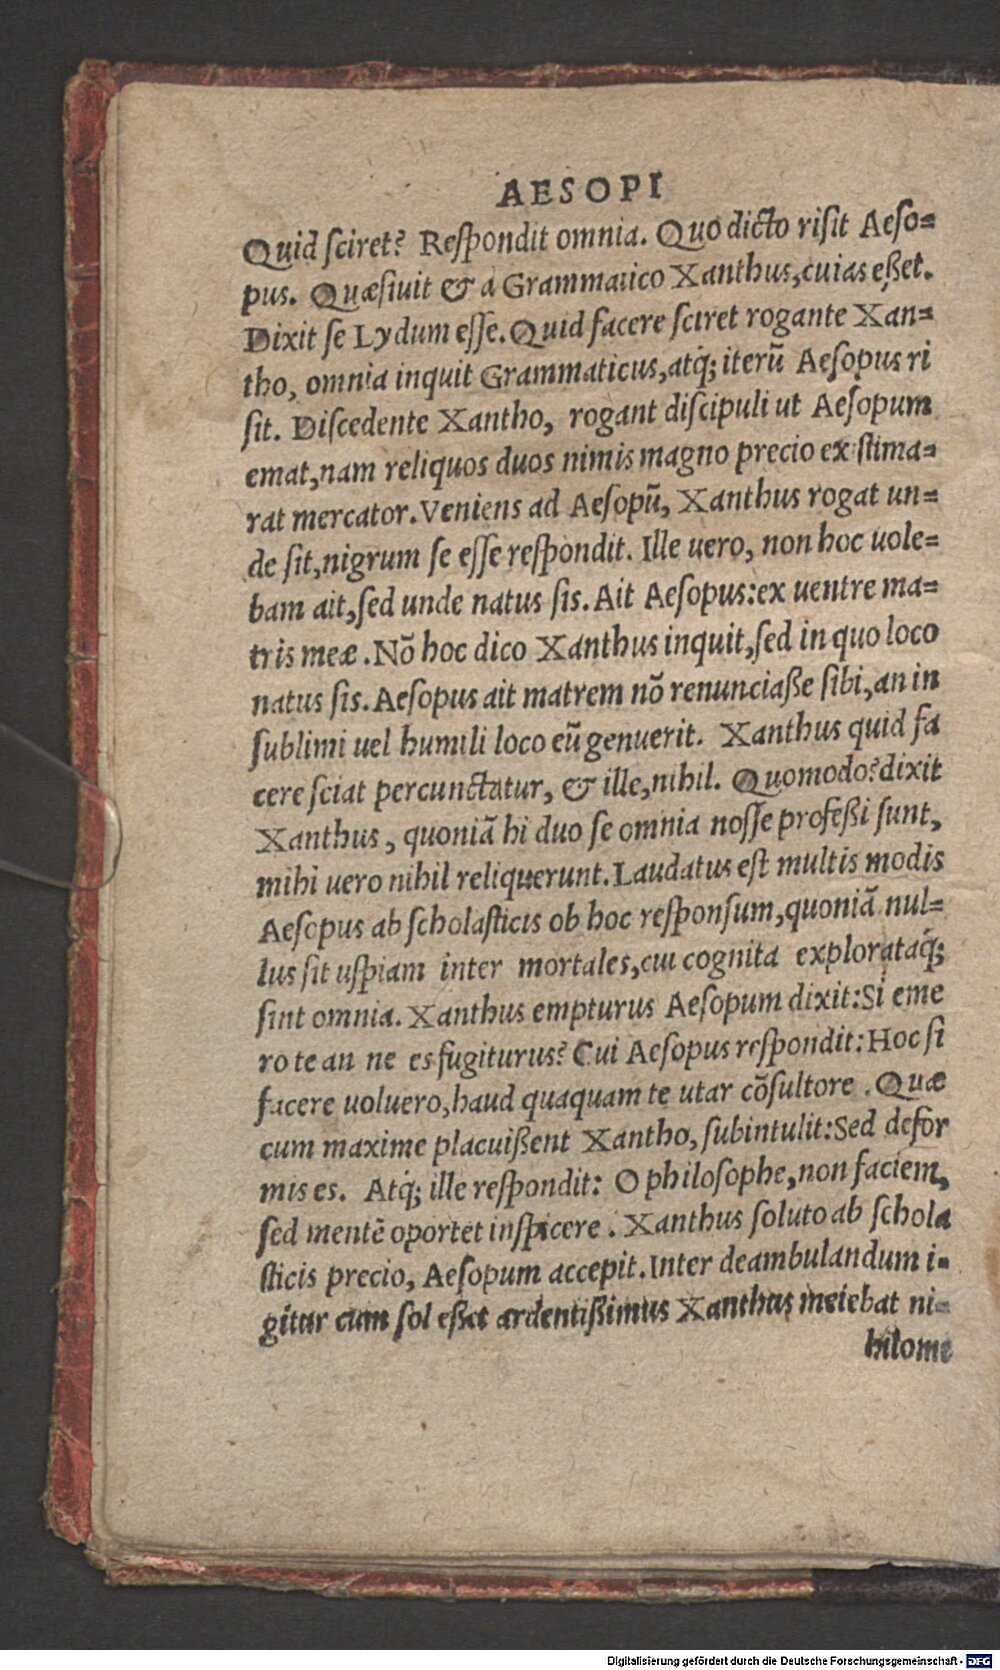 AESOPI
Quid ſciret? Reſpondit omnia. Quo dicto riſit Aeſo=
pus. Quæſiuit & a Grammatico Xanthus, cuias eßet.
Dixit ſe Lydum eſſe. Quid facere ſciret rogante Xan=
tho, omnia inquit Grammaticus, atq́; iterũ Aeſopus ri
ſit. Diſcedente Xantho, rogant diſcipuli ut Aeſopum
emat, nam reliquos duos nimis magno precio exiſtima=
rat mercator. Veniens ad Aeſopũ, Xanthus rogat un=
de ſit, nigrum ſe eſſe reſpondit. Ille uero, non hoc uole=
bam ait, ſed unde natus ſis. Ait Aeſopus: ex uentre ma=
tris meæ. Nõ hoc dico Xanthus inquit, ſed in quo loco
natus ſis. Aeſopus ait matrem nõ renunciaße ſibi, an in
ſublimi uel humili loco eũ genuerit. Xanthus quid fa
cere ſciat percunctatur, & ille, nihil. Quomodo? dixit
Xanthus, quoniã hi duo ſe omnia noſſe profeßi ſunt,
mihi uero nihil reliquerunt. Laudatus eſt multis modis
Aeſopus ab ſcholaſticis ob hoc reſponſum, quoniã nul=
lus ſit uſpiam inter mortales, cui cognita explorataq́;
ſint omnia. Xanthus empturus Aeſopum dixit: Si eme
ro te an ne es fugiturus? Cui Aeſopus reſpondit: Hoc ſi
facere uoluero, haud quaquam te utar cõſultore. Quæ
cum maxime placuißent Xantho, ſubintulit: Sed defor
mis es. Atq́; ille reſpondit: O philoſophe, non faciem,
ſed mentẽ oportet inſpicere. Xanthus ſoluto ab ſchola
ſticis precio, Aeſopum accepit. Inter deambulandum i=
gitur cum ſol eßet ardentißimus Xanthus meiebat ni=
hilome
Digitalisierung gefördert durch die Deutsche Forschungsgemeinschaft - DFG